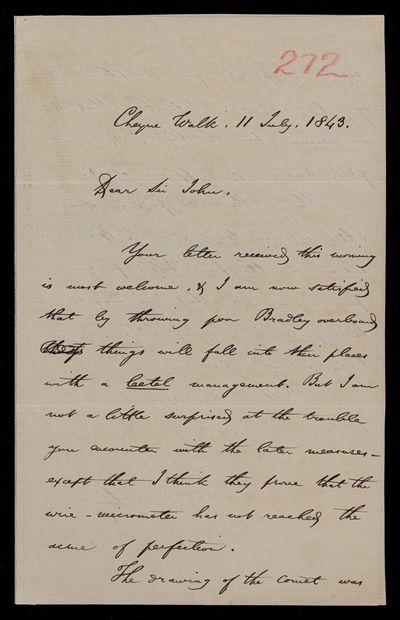 272
Cheyne Walk, 11 July, 1843.
Dear Sir John,
Your letter received this morning
is most welcome, & I am now satisfied
that by throwing poor Bradley overboard
things will fall into their places
with a leetel management. But I am
not a little surprised at the trouble
you encounter with the later measures –
except that I think they prove that the
wire-micrometer has not reached the
acme of perfection.
The drawing of the comet was